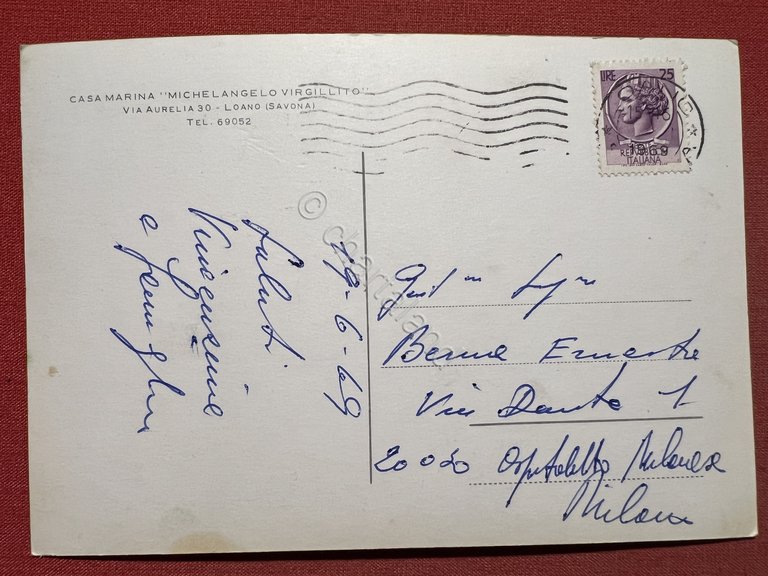 CASA MARINA "MICHELANGELO VIRGILLITO"
VIA AURELIA 30 - LOANO (SAVONA)
TEL. 69052
LIRE 25
1969
REPUBBLICA
ITALIANA
19-6-69
Saluti
Vincenzina
e famiglia
Gent ma Sig ra
Berna Ernesta
Via Dante 1
20030 Ospitaletto Milanese
Milano